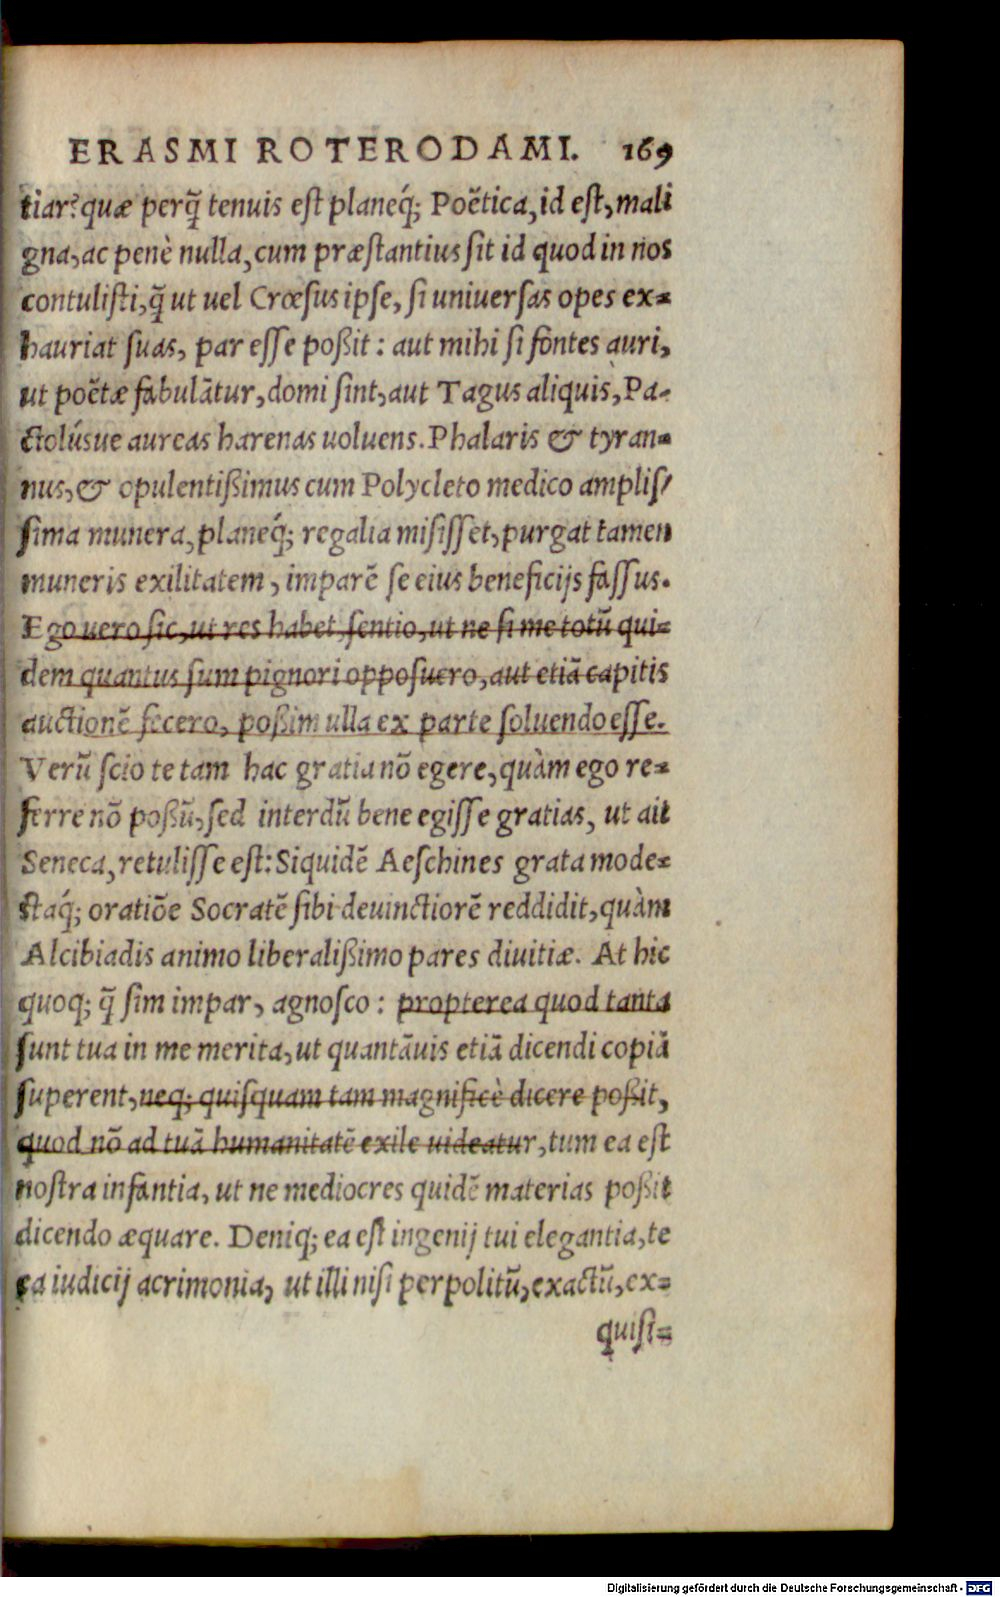 ERASMI ROTERODAMI. 169
tiar? quæ perq̃ tenuis est planeq́; Poẽtica, id est, mali
gna, ac penè nulla, cum præstantius sit id quod in nos
contulisti, q̃ ut uel Crœsus ipse, si uniuersas opes ex=
hauriat suas, par esse poßit: aut mihi si fontes auri,
ut poẽtæ fabulãtur, domi sint, aut Tagus aliquis, Pa-
ctolúsue aureas harenas uoluens. Phalaris & tyran=
nus, & opulentißimus cum Polycleto medico amplis/
sima munera, planeq́; regalia misisset, purgat tamen
muneris exilitatem, imparẽ se eius beneficijs fassus.
Ego uero sic, ut res habet, sentio, ut ne si me totũ qui=
dem quantus sum pignori opposuero, aut etiã capitis
auctionẽ fecero, poßim ulla ex parte soluendo esse.
Verũ scio te tam hac gratia nõ egere, quàm ego re=
ferre nõ poßũ, sed interdũ bene egisse gratias, ut ait
Seneca, retulisse est: Siquidẽ Aeschines grata mode=
staq́; oratiõe Socratẽ sibi deuinctiorẽ reddidit, quàm
Alcibiadis animo liberalißimo pares diuitiæ. At hic
quoq; q̃ sim impar, agnosco: propterea quod tanta
sunt tua in me merita, ut quantãuis etiã dicendi copiã
superent, neq; quisquam tam magnificè dicere poßit,
quod nõ ad tuã humanitatẽ exile uideatur, tum ea est
nostra infantia, ut ne mediocres quidẽ materias poßit
dicendo æquare. Deniq; ea est ingenij tui elegantia, te
ea iudicij acrimonia, ut illi nisi perpolitũ, exactũ, ex=
quisi=
Digitalisierung gefördert durch die Deutsche Forschungsgemeinschaft - DFG